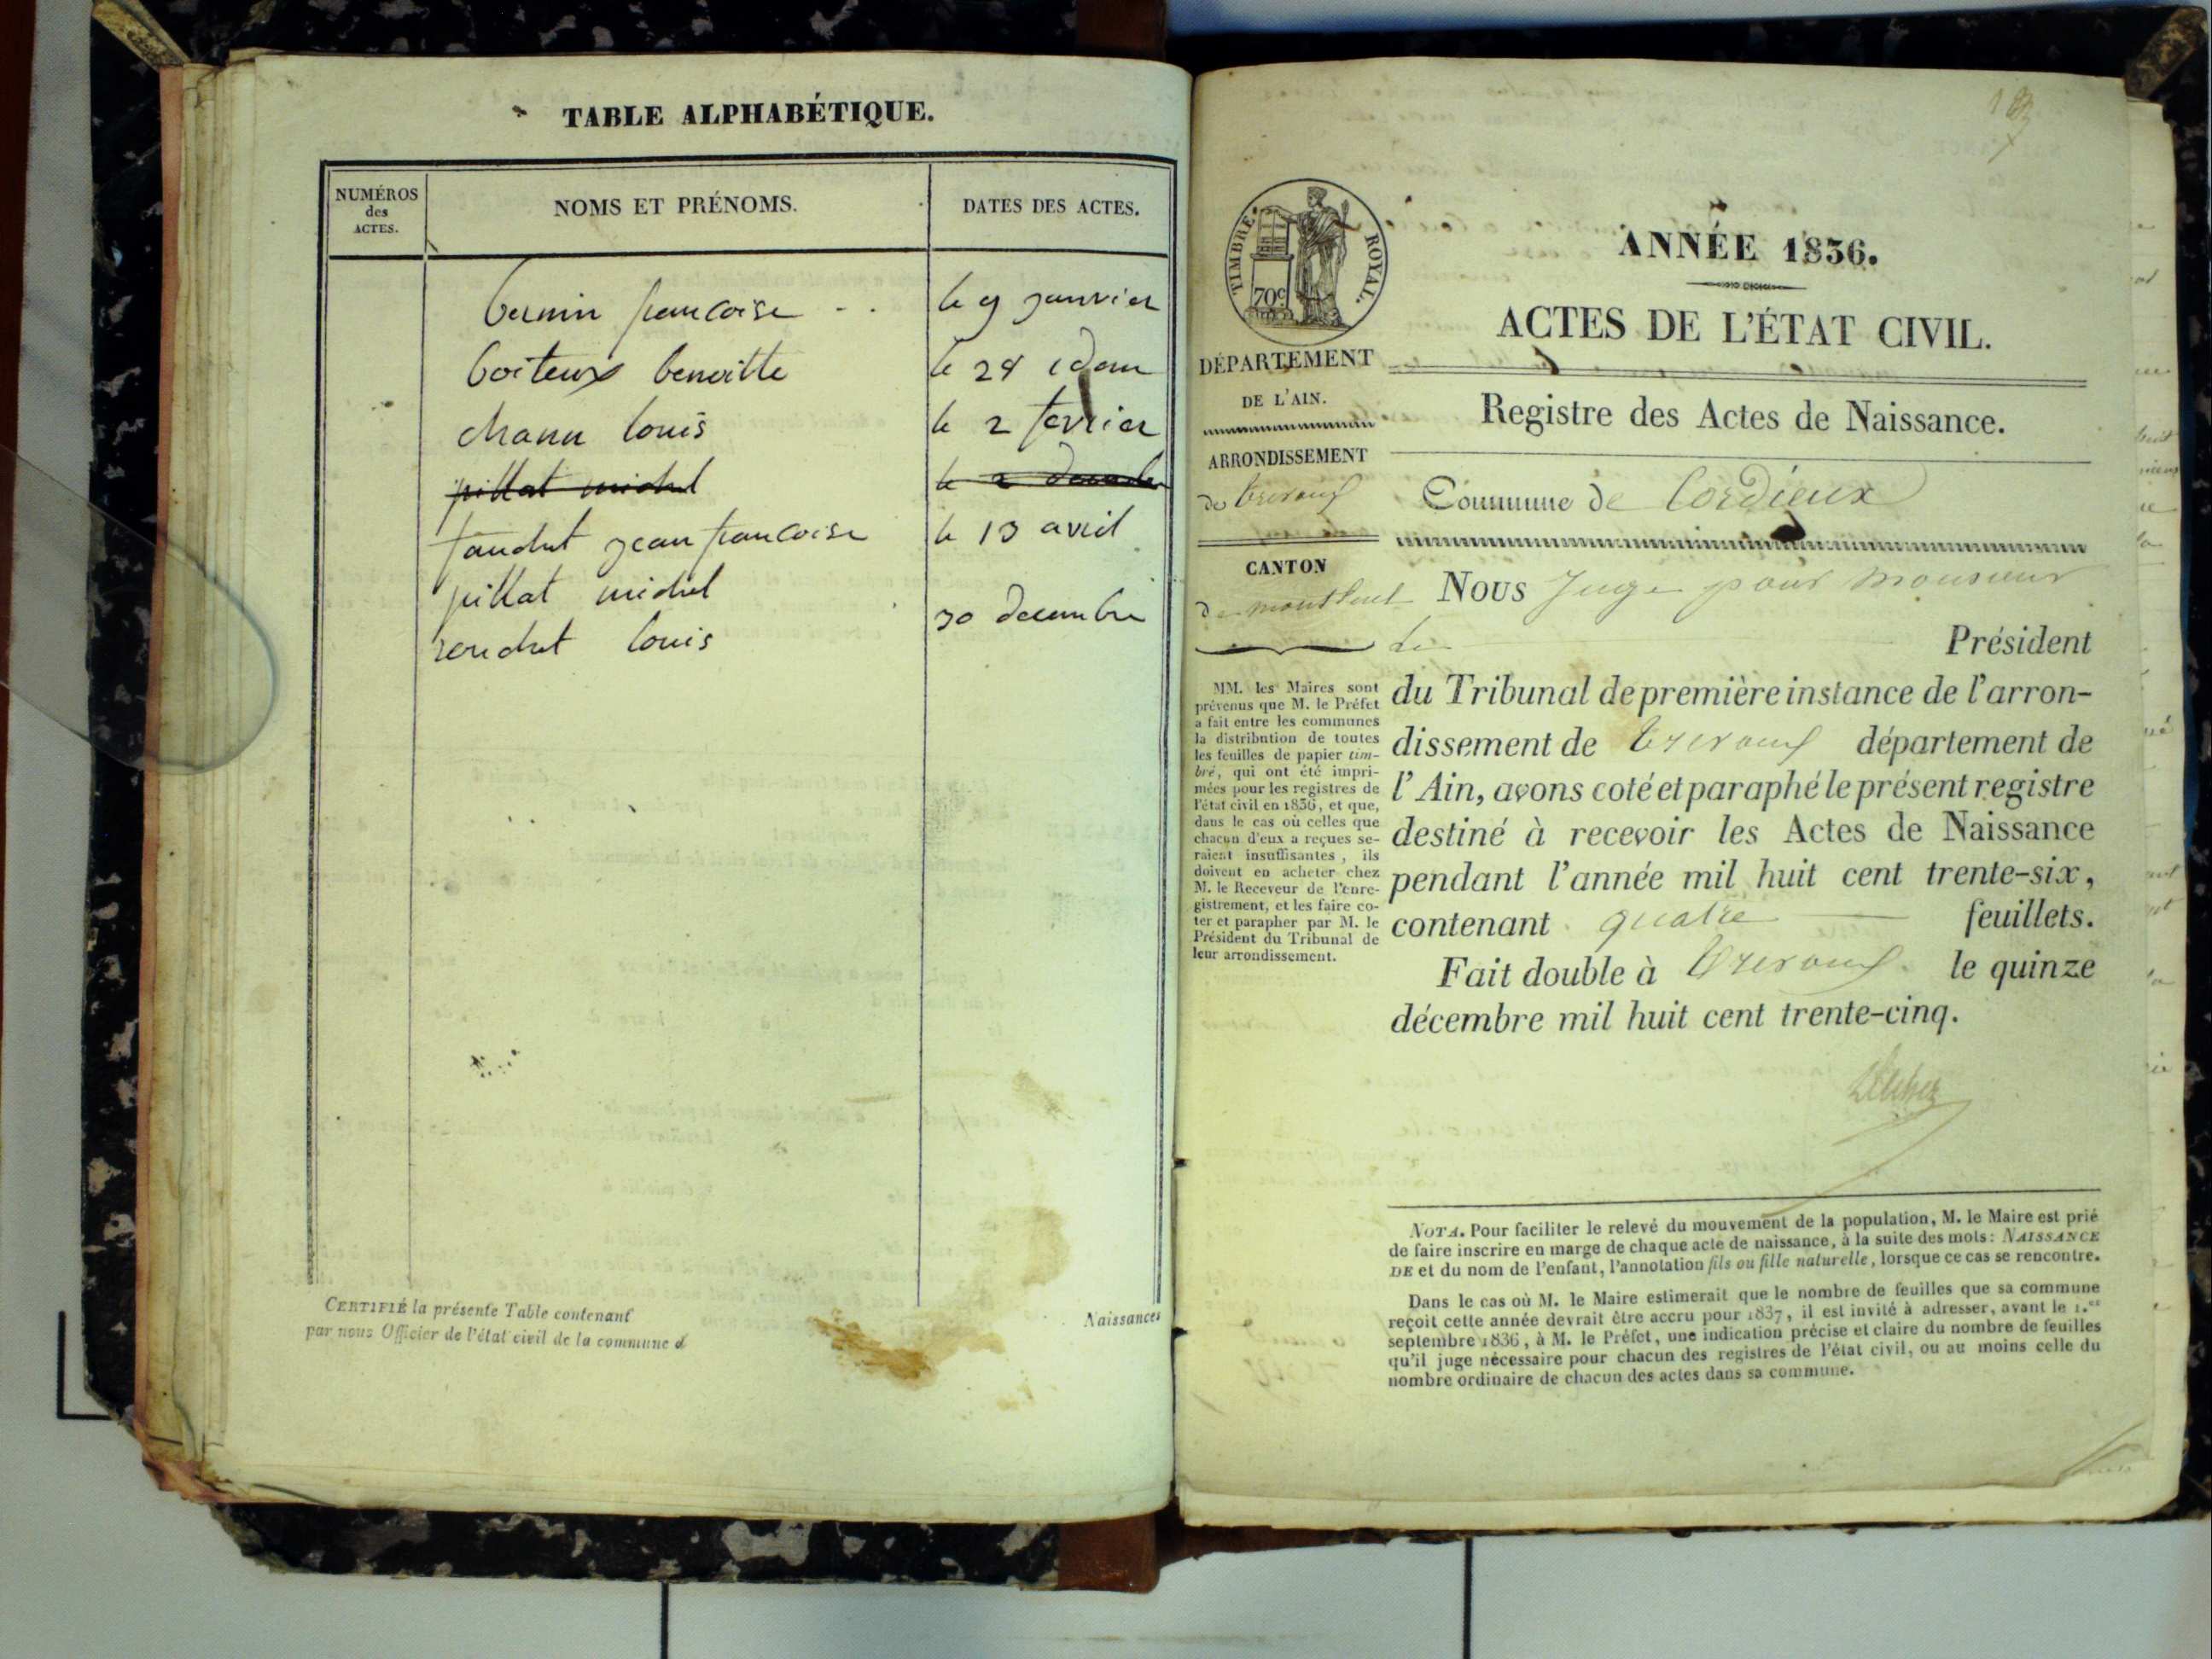 TABLE ALPHABÉTIQUE.
NUMÉROS
des
ACTES.
NOMS ET PRÉNOMS.
DATES DES ACTES.
françoise le 9 janvier
boiteux benoitte le 28 idem
chanu louis le 2 fevrier
pillat michel le 2
faudret jean françoise le 13 avril
pillat michel
louis 30 decembre
CERTIFIÉ la présente Table contenant
par nous Officier de l'état civil de la commune d
Naissances
TIMBRE ROYAL.
70c
DÉPARTEMENT
DE L'AIN.
ARRONDISSEMENT
de trevoux
CANTON
de montluel
MM. les Maires sont
prévenus que M. le Préfet
a fait entre les communes
la distribution de toutes
les feuilles de papier tim-
bré, qui ont été impri-
mées pour les registres de
l'état civil en 1836, et que,
dans le cas où celles que
chacun d'eux a reçues se-
raient insuffisantes, ils
doivent en acheter chez
M. le Receveur de l'enre-
gistrement, et les faire co-
ter et parapher par M. le
Président du Tribunal de
leur arrondissement.
ANNÉE 1836.
ACTES DE L'ÉTAT CIVIL.
Registre des Actes de Naissance.
Commune de Cordieux
Nous Juge pour monsieur
le Président
du Tribunal de première instance de l'arron-
dissement de trevoux département de
l'Ain, avons coté et paraphé le présent registre
destiné à recevoir les Actes de Naissance
pendant l'année mil huit cent trente-six,
contenant quatre feuillets.
Fait double à trevoux le quinze
décembre mil huit cent trente-cinq.
NOTA. Pour faciliter le relevé du mouvement de la population, M. le Maire est prié
de faire inscrire en marge de chaque acte de naissance, à la suite des mots: NAISSANCE
DE et du nom de l'enfant, l'annotation fils ou fille naturelle, lorsque ce cas se rencontre.
Dans le cas où M. le Maire estimerait que le nombre de feuilles que sa commune
reçoit cette année devrait être accru pour 1837, il est invité à adresser, avant le 1.er
septembre 1836, à M. le Préfet, une indication précise et claire du nombre de feuilles
qu'il juge nécessaire pour chacun des registres de l'état civil, ou au moins celle du
nombre ordinaire de chacun des actes dans sa commune.